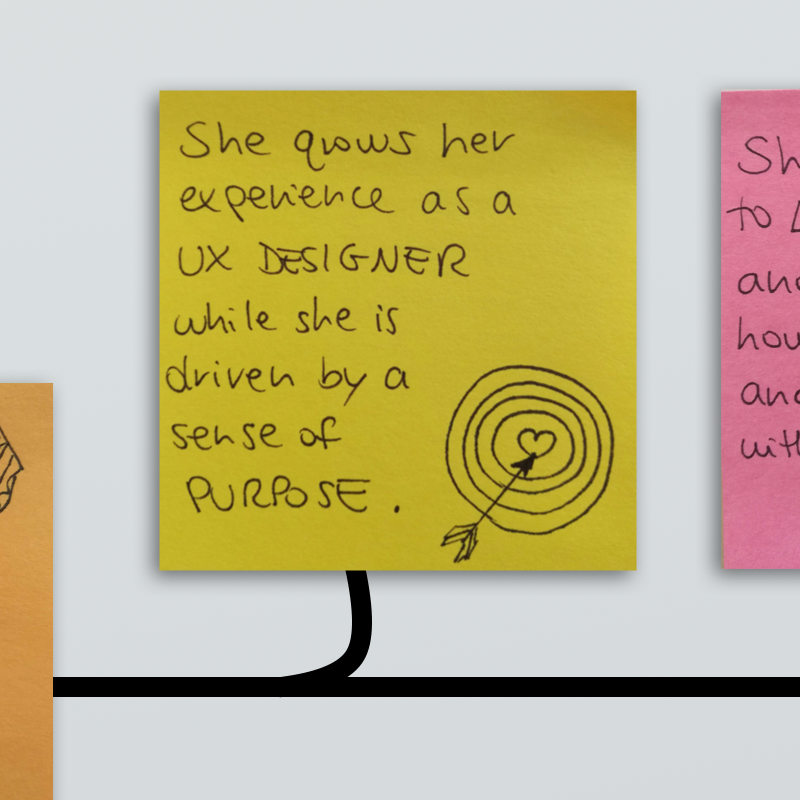 She grows her
experience as a
UX DESIGNER
while she is
driven by a
sense of
PURPOSE.
to